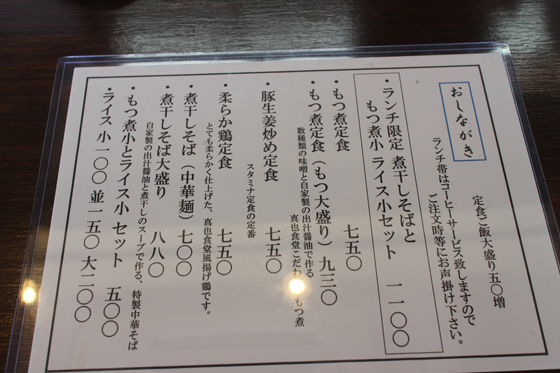 おしながき
定食ご飯大盛り五〇増
ランチ帯はコーヒーサービス致しますので
ご注文時等にお声掛け下さい。
・ランチ限定 煮干しそばと
もつ煮小 ライス小セット 一一〇〇
・もつ煮定食 七五〇
・もつ煮定食(もつ大盛り)九三〇
数種類の味噌と自家製の出汁醤油で作る
真也食堂こだわ もつ煮
・豚生姜炒め定食 七五〇
スタミナ定食の定番
・柔らか鶏定食 七五〇
とても柔らかく仕上げた、真也食堂風揚げ鶏です。
・煮干しそば(中華麺)七〇〇
・煮干しそば大盛り 八八〇
自家製の出汁醤油と煮干しのスープで作る、特製中華そば
・もつ煮小とライス小 セット 五〇〇
・ライス 小一〇〇 並一五〇 大二〇〇